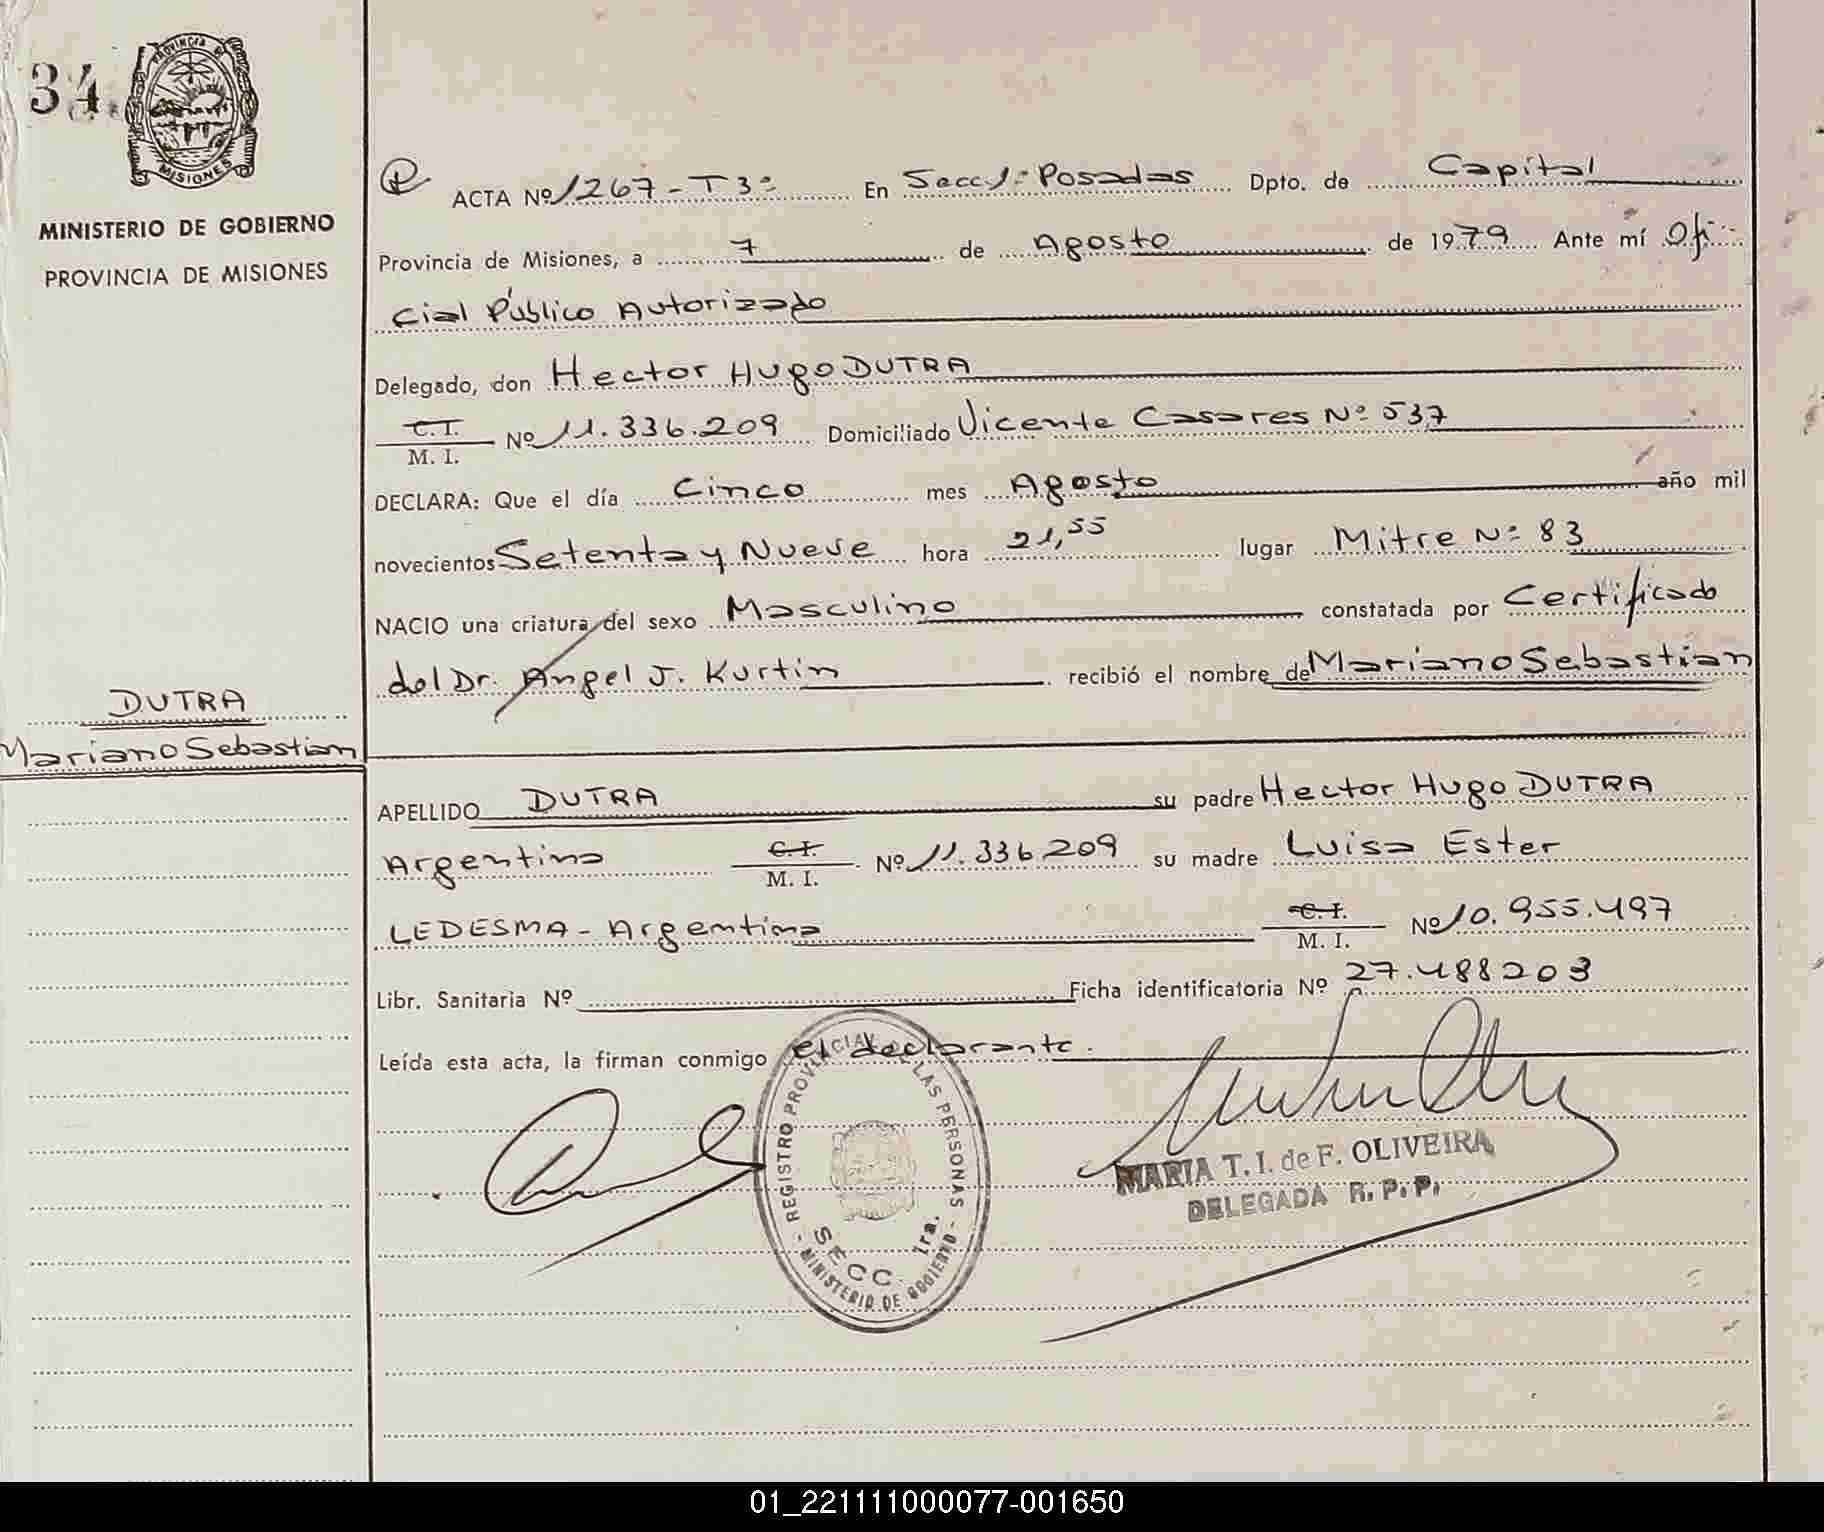 34.
PROVINCIA DE
MISIONES
MINISTERIO DE GOBIERNO
PROVINCIA DE MISIONES
DUTRA
Mariano Sebastian
ACTA Nº 1267-T3º En Secc 1ª Posadas Dpto. de Capital
Provincia de Misiones, a 7 de Agosto de 1979 Ante mí Ofi-
cial Público Autorizado
Delegado, don Hector Hugo DUTRA
C.I.
M. I. Nº 11.336.209 Domiciliado Vicente Casares Nº 537
DECLARA: Que el día Cinco mes Agosto año mil
novecientos Setenta y Nueve hora 21,55 lugar Mitre Nº 83
NACIO una criatura del sexo Masculino constatada por Certificado
del Dr. Angel J. Kurtin recibió el nombre de Mariano Sebastian
APELLIDO DUTRA su padre Hector Hugo DUTRA
Argentino C.I. M. I. Nº 11.336.209 su madre Luisa Ester
LEDESMA - Argentina C.I. M. I. Nº 10.955.497
Libr. Sanitaria Nº Ficha identificatoria Nº 27.488203
Leída esta acta, la firman conmigo el declarante.
REGISTRO PROVINCIAL DE LAS PERSONAS
SECC. 1ra.
- MINISTERIO DE GOBIERNO -
MARIA T. I. de F. OLIVEIRA
DELEGADA R. P. P.
01_221111000077-001650